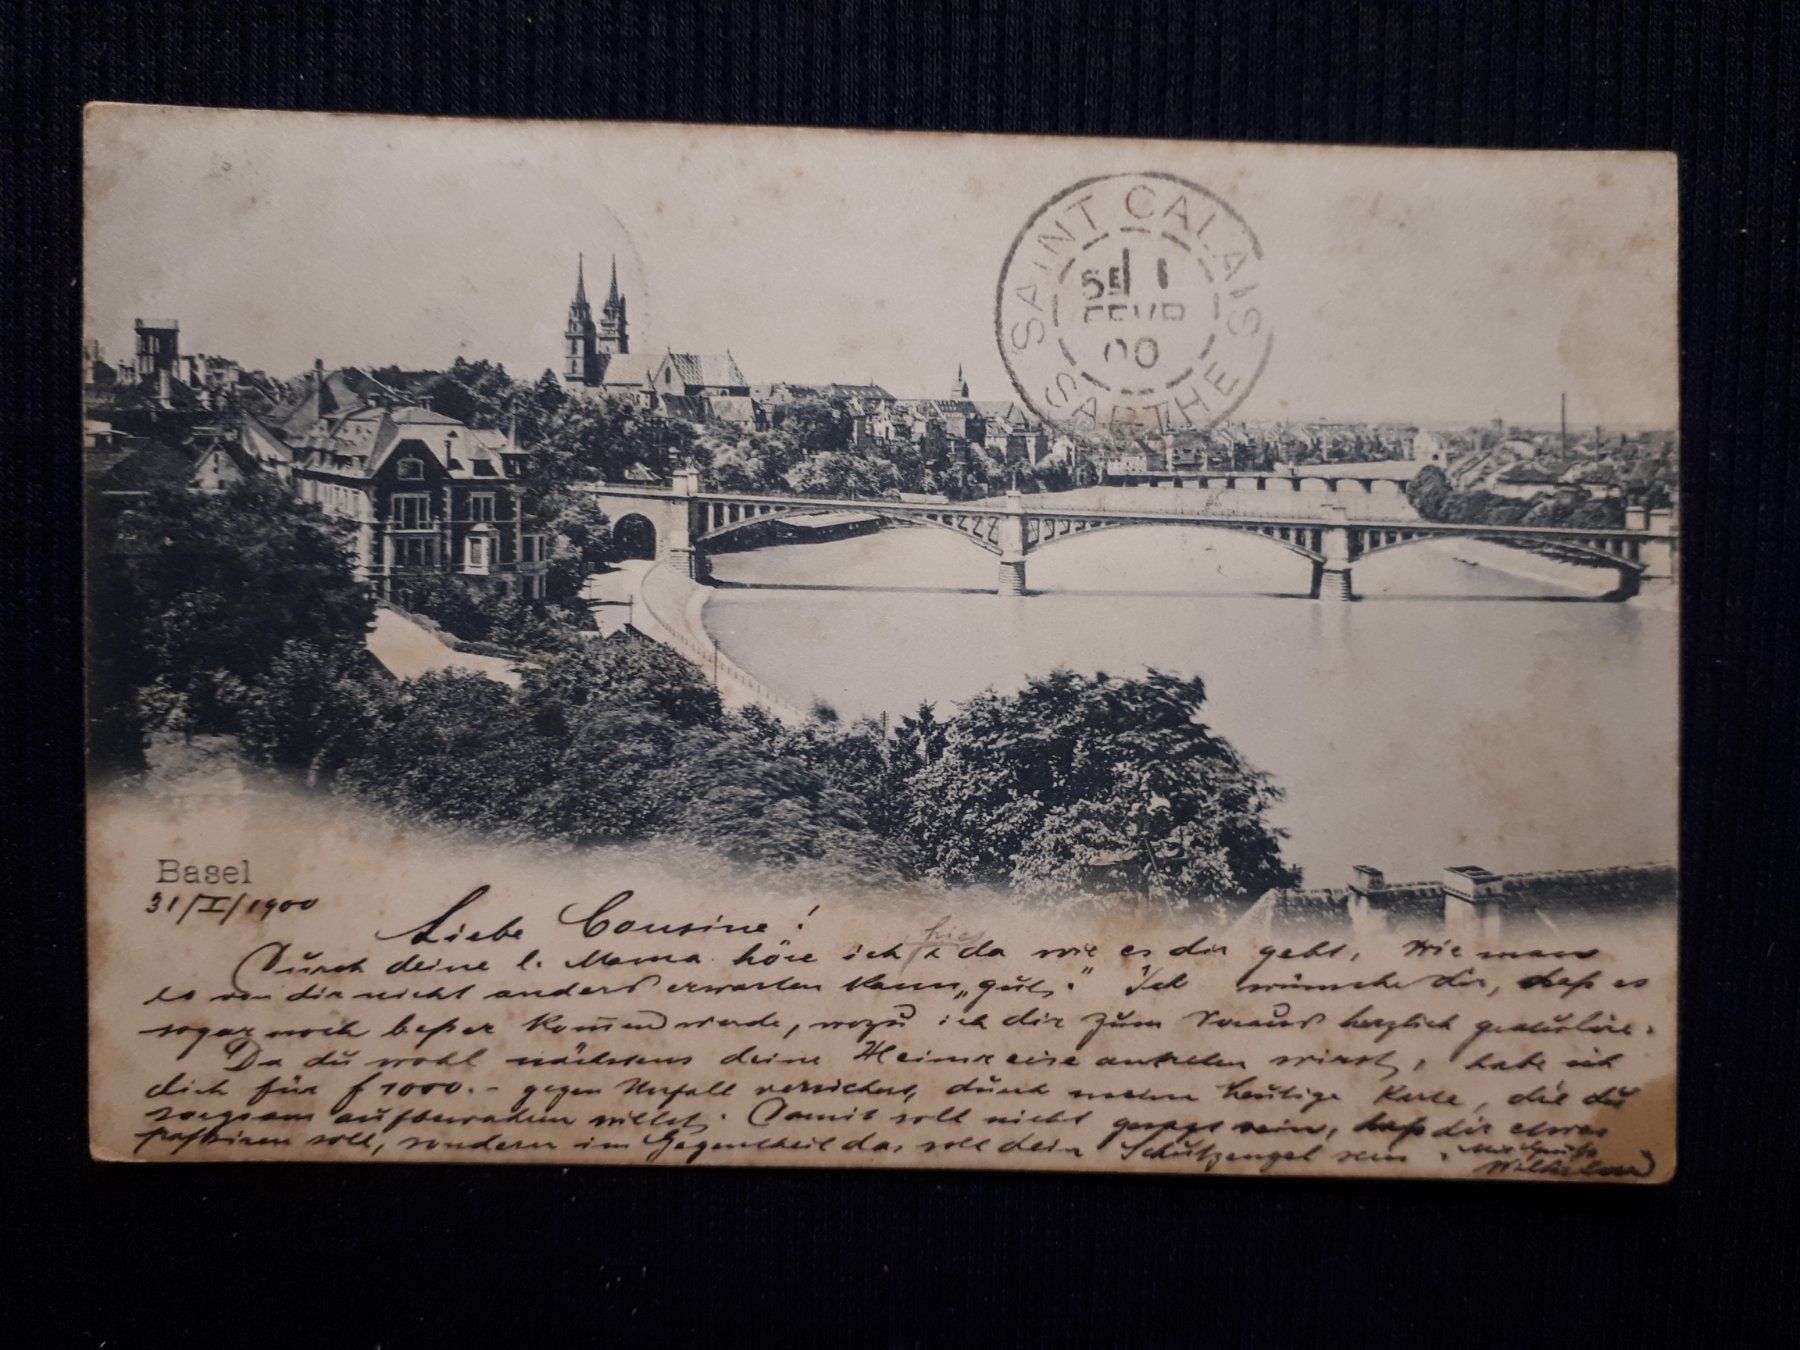 SAINT CALAIS
1
FEVR
00
SARTHE
Basel
31/I/1900
Liebe Cousine!
Durch deine l. Mama höre ich hie & da wie es dir geht, wie man
es von dir nicht anders erwarten kann, „gut." Ich wünsche dir, daß es
sogar noch beßer kom̅en werde, wozu ich dir zum Voraus herzlich gratuliere.
Da du wohl nächstens deine Heimreise antreten wirst, habe ich
dich für f 1000.- gegen Unfall versichert, durch meine heutige Karte, die du
sorgsam aufbewahren willst. Damit soll nicht gesagt sein, daß dir etwas
paßieren soll, sondern im Gegentheil das soll dein Schutzengel sein. Mit Gruß